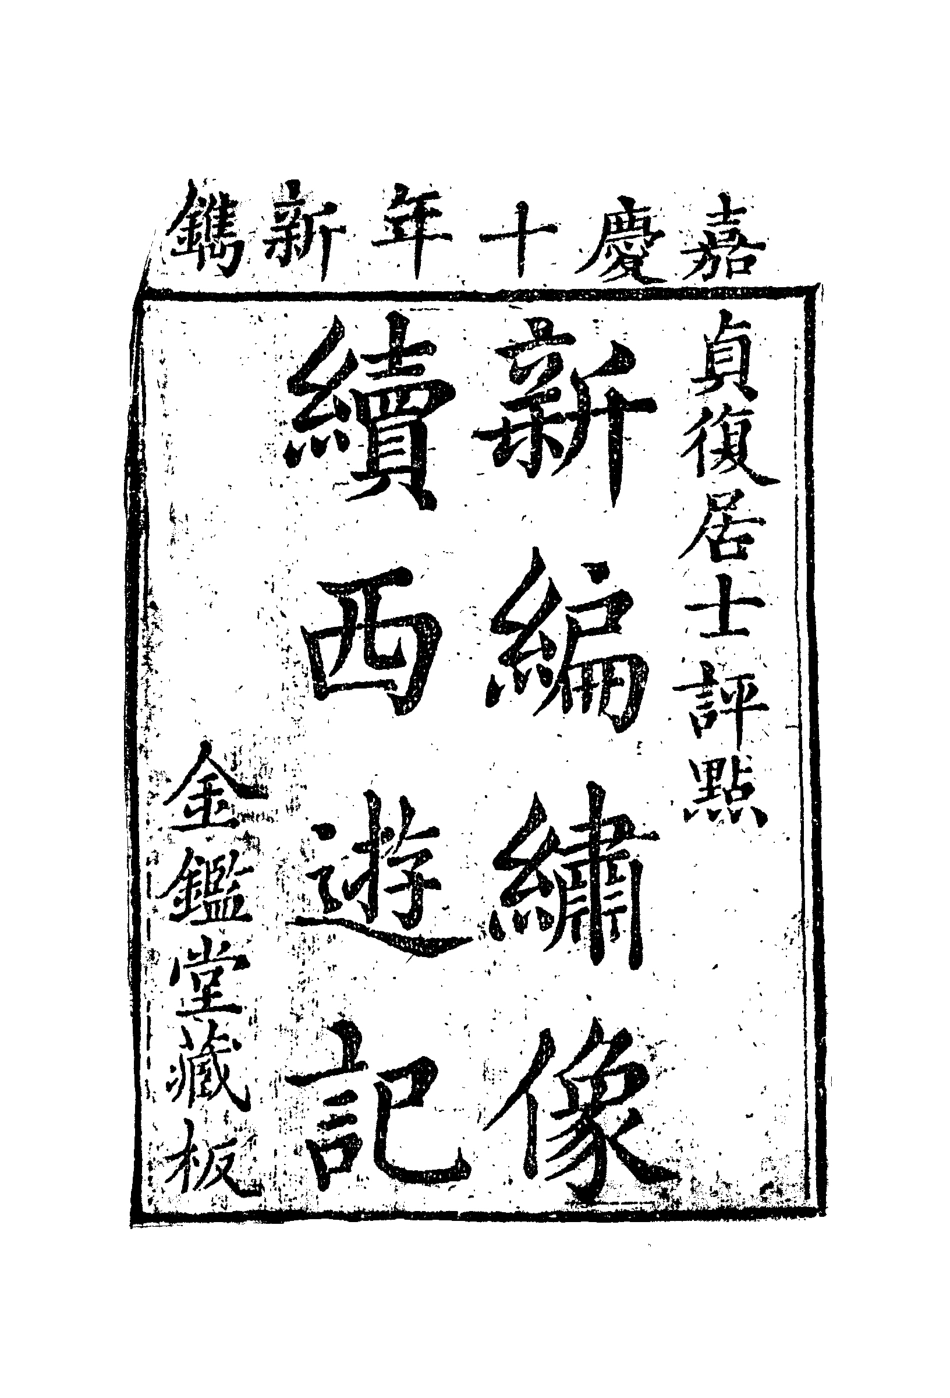 嘉慶十年新鐫
貞復居士評點
新編繡像
續西遊記
金鑑堂藏板